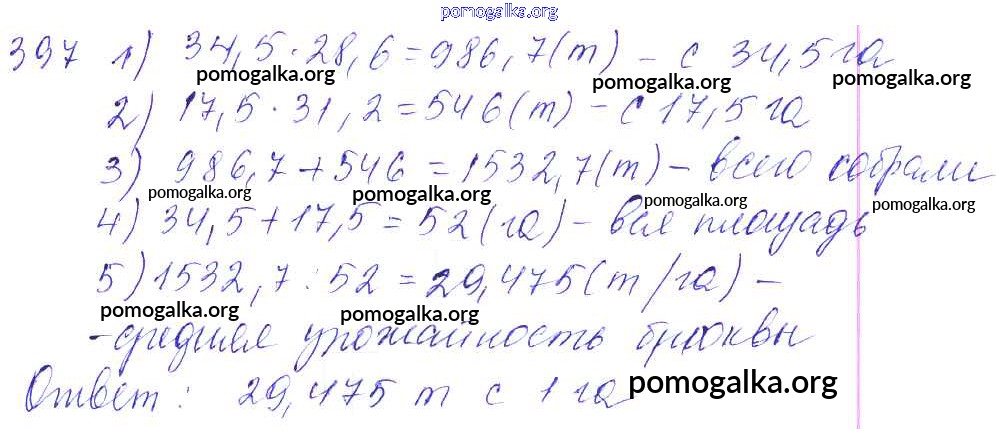 pomogalka.org
397 1) 34,5 · 28,6 = 986,7 (т) - с 34,5 га
pomogalka.org pomogalka.org pomogalka.org
2) 17,5 · 31,2 = 546 (т) - с 17,5 га
3) 986,7 + 546 = 1532,7 (т) - всего собрали
pomogalka.org pomogalka.org pomogalka.org pomogalka.org
4) 34,5 + 17,5 = 52 (га) - вся площадь
5) 1532,7 : 52 = 29,475 (т/га) -
pomogalka.org pomogalka.org
- средняя урожайность брюквы
Ответ: 29,475 т с 1 га
pomogalka.org